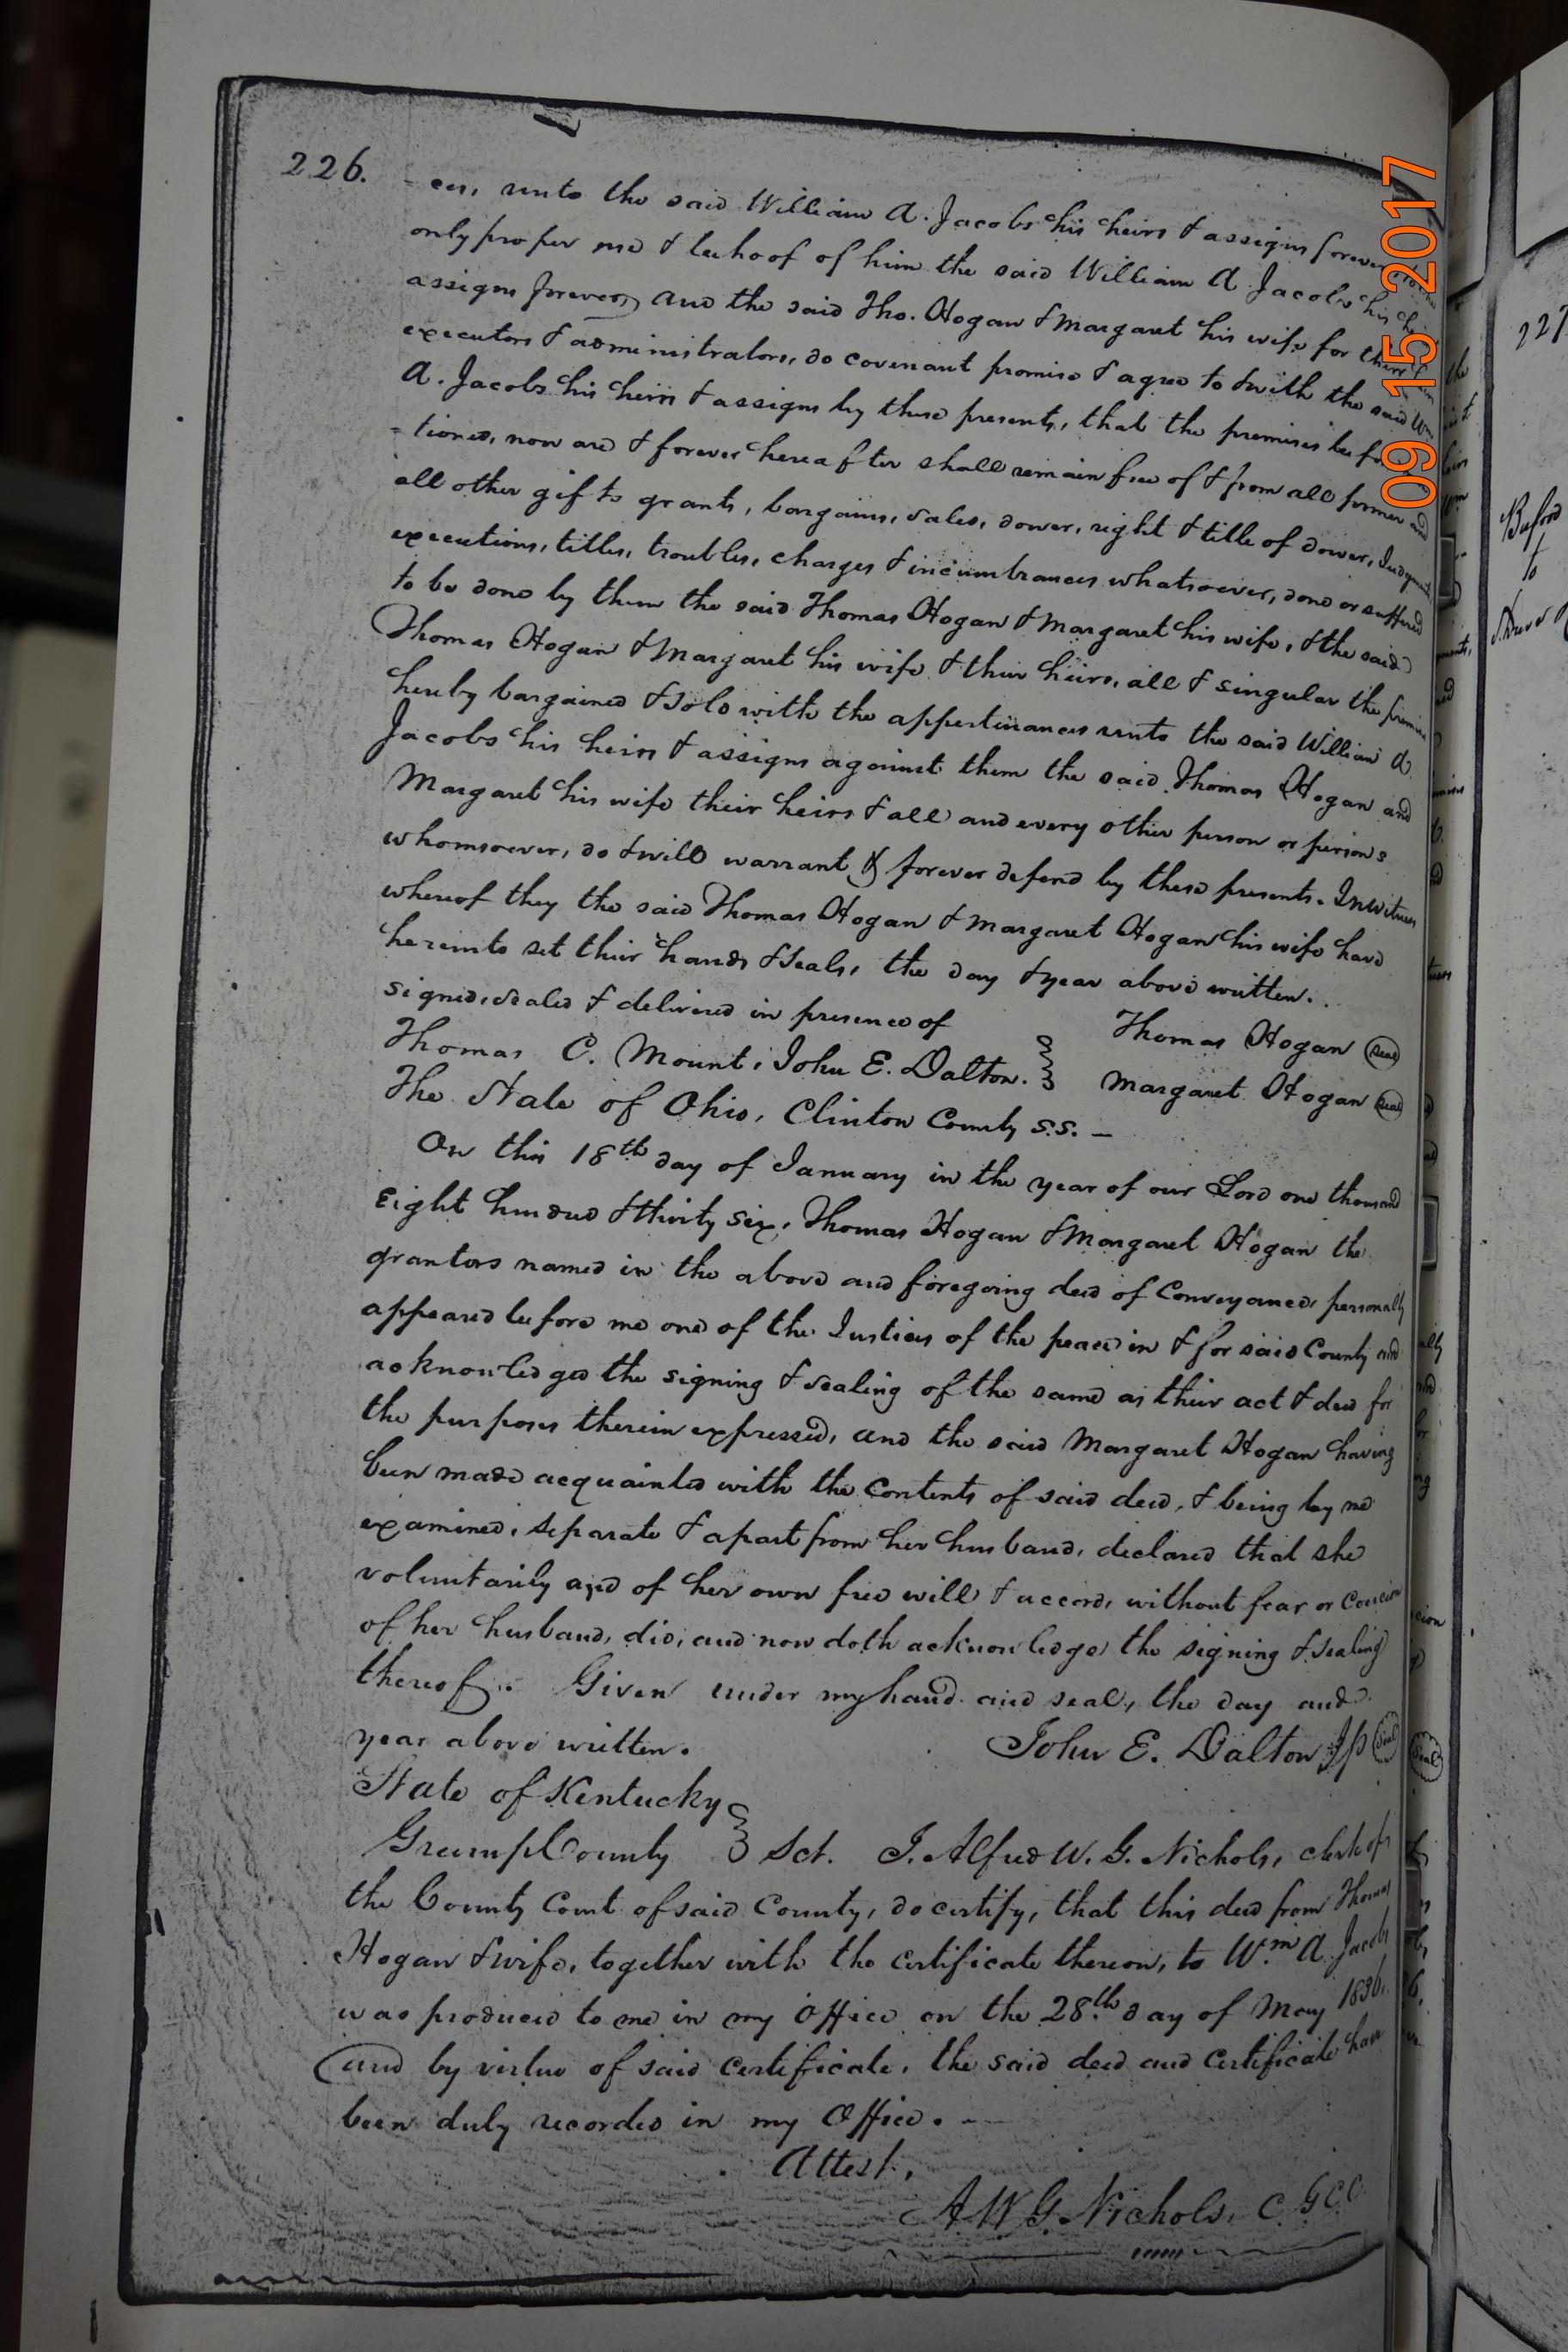 226.
- ces, unto the said William A. Jacobs his heirs & assigns forever
only proper use & behoof of him the said William A. Jacobs his
assigns forever, and the said Tho. Hogan & Margaret his wife for their
executors & administrators, do covenant promise & agree to & with the said Wm
A. Jacobs his heirs & assigns by these presents, that the premises before
- tioned, now are & forever hereafter shall remain free of & from all former and
all other gifts grants, bargains, sales, dower, right & title of dower, Judgments,
executions, titles, troubles, charges & incumbrances whatsoever, done or suffered
to be done by them the said Thomas Hogan & Margaret his wife, & the said
Thomas Hogan & Margaret his wife & their heirs, all & singular the premises
hereby bargained & sold with the appertinances unto the said William A.
Jacobs his heirs & assigns against them the said Thomas Hogan and
Margaret his wife their heirs & all and every other person or persons
whomsoever, do & will warrant & forever defend by these presents. In witness
whereof they the said Thomas Hogan & Margaret Hogan his wife have
hereunto set their hands & seals, the day & year above written.
signed, sealed & delivered in presence of
Thomas Hogan (seal)
Thomas C. Mount, John E. Dalton.
Margaret Hogan (seal)
The State of Ohio, Clinton County S.S. —
On this 18th day of January in the year of our Lord one thousand
Eight hundred & thirty six, Thomas Hogan & Margaret Hogan the
grantors named in the above and foregoing deed of Conveyance, personally
appeared before me one of the Justices of the peace in & for said County and
acknowledged the signing & sealing of the same as their act & deed for
the purposes therein expressed, and the said Margaret Hogan having
been made acquainted with the Contents of said deed, & being by me
examined, separate & apart from her husband, declared that she
voluntarily and of her own free will & accord, without fear or Coercion
of her husband, did, and now doth acknowledge, the signing & sealing
thereof. Given under my hand and seal, the day and
year above written.
John E. Dalton JP (Seal)
State of Kentucky
Greenup County } Sct. I. Alfred W. G. Nichols, clerk of
the County Court of said County, do certify, that this deed from Thomas
Hogan & wife, together with the certificate thereon, to Wm. A. Jacobs
was produced to me in my office on the 28th day of May 1836.
and by virtue of said Certificate, the said deed and Certificate have
been duly recorded in my Office. —
Attest,
A W G. Nichols, C. G C C
09 15 2017
227
Buford
to